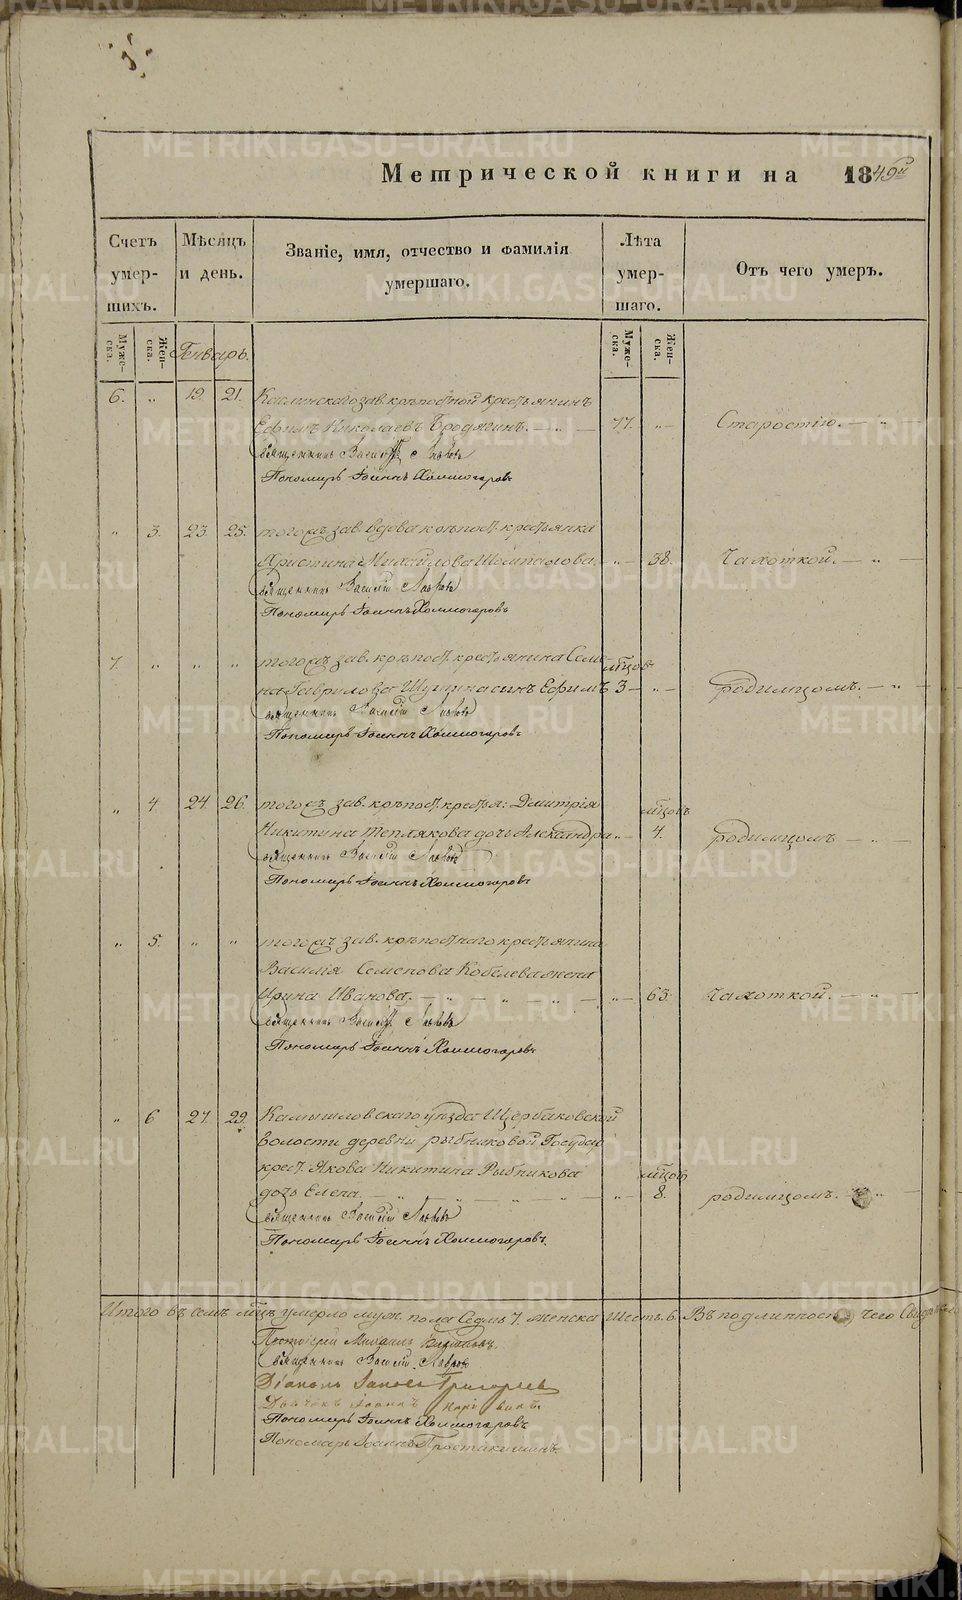 Метрической книги на 1849й
Счетъ умершихъ.
Мѣсяцъ и день.
Званіе, имя, отчество и фамилія умершаго.
Лѣта умершаго.
Отъ чего умеръ.
Муже-ска.
Жен-ска.
Генварь.
Муже-ска.
Жен-ска.
6. „ 19. 21. Каслинскаго зав. крѣпостной крестьянинъ
Ефимъ Николаевъ Бродягинъ. — „ — 77. „ — Старостію. — „ —
Священникъ Василій Лавровъ
Пономарь Іоаннъ Холмогоровъ
„ 3. 23. 25. тогожъ зав. вдова крѣпост. крестьянка
Христина Михайлова Шомпалова. „ — 38. Чахоткой. — „ —
Священникъ Василій Лавровъ
Пономарь Іоаннъ Холмогоровъ
7. „ „ „ тогожъ зав. крѣпост. крестьянина Семе- мѣцовъ
на Гаврилова Щугина сынъ Ефимъ 3 — „ — родимцомъ. — „ —
Священникъ Василій Лавровъ
Пономарь Іоаннъ Холмогоровъ
„ 4 24. 26. тогожъ зав. крѣпост. крестья: Дмитрія мѣцовъ
Никитина Теплякова дочь Александра „ — 4. родимцомъ — „ —
Священникъ Василій Лавровъ
Пономарь Іоаннъ Холмогоровъ
„ 5. „ „ тогожъ зав. крѣпостнаго крестьянина
Василія Семенова Кобелева жена
Ирина Иванова. — „ — „ — „ — „ — 63. Чахоткой. — „ —
Священникъ Василій Лавровъ
Пономарь Іоаннъ Холмогоровъ
„ 6 27. 29. Камышловскаго уѣзда Щербаковской
волости деревни рыбниковой Государ
крест. Якова Никитина Рыбникова мѣцовъ
дочь Елена. — „ — „ — „ — „ — 8. родимцомъ. — „ —
Священникъ Василій Лавровъ
Пономарь Іоаннъ Холмогоровъ.
Итого въ семъ мѣцѣ умерло муж. пола Седмь 7. женска Шесть. 6. Въ подлинности чего
Протоіерей Михаилъ
Священникъ Василій Лавровъ
Діаконъ Григорьевъ
Дьячекъ Іоаннъ
Пономарь Іоаннъ Холмогоровъ
Пономарь Іоаннъ
METRIKI.GASO-URAL.RU